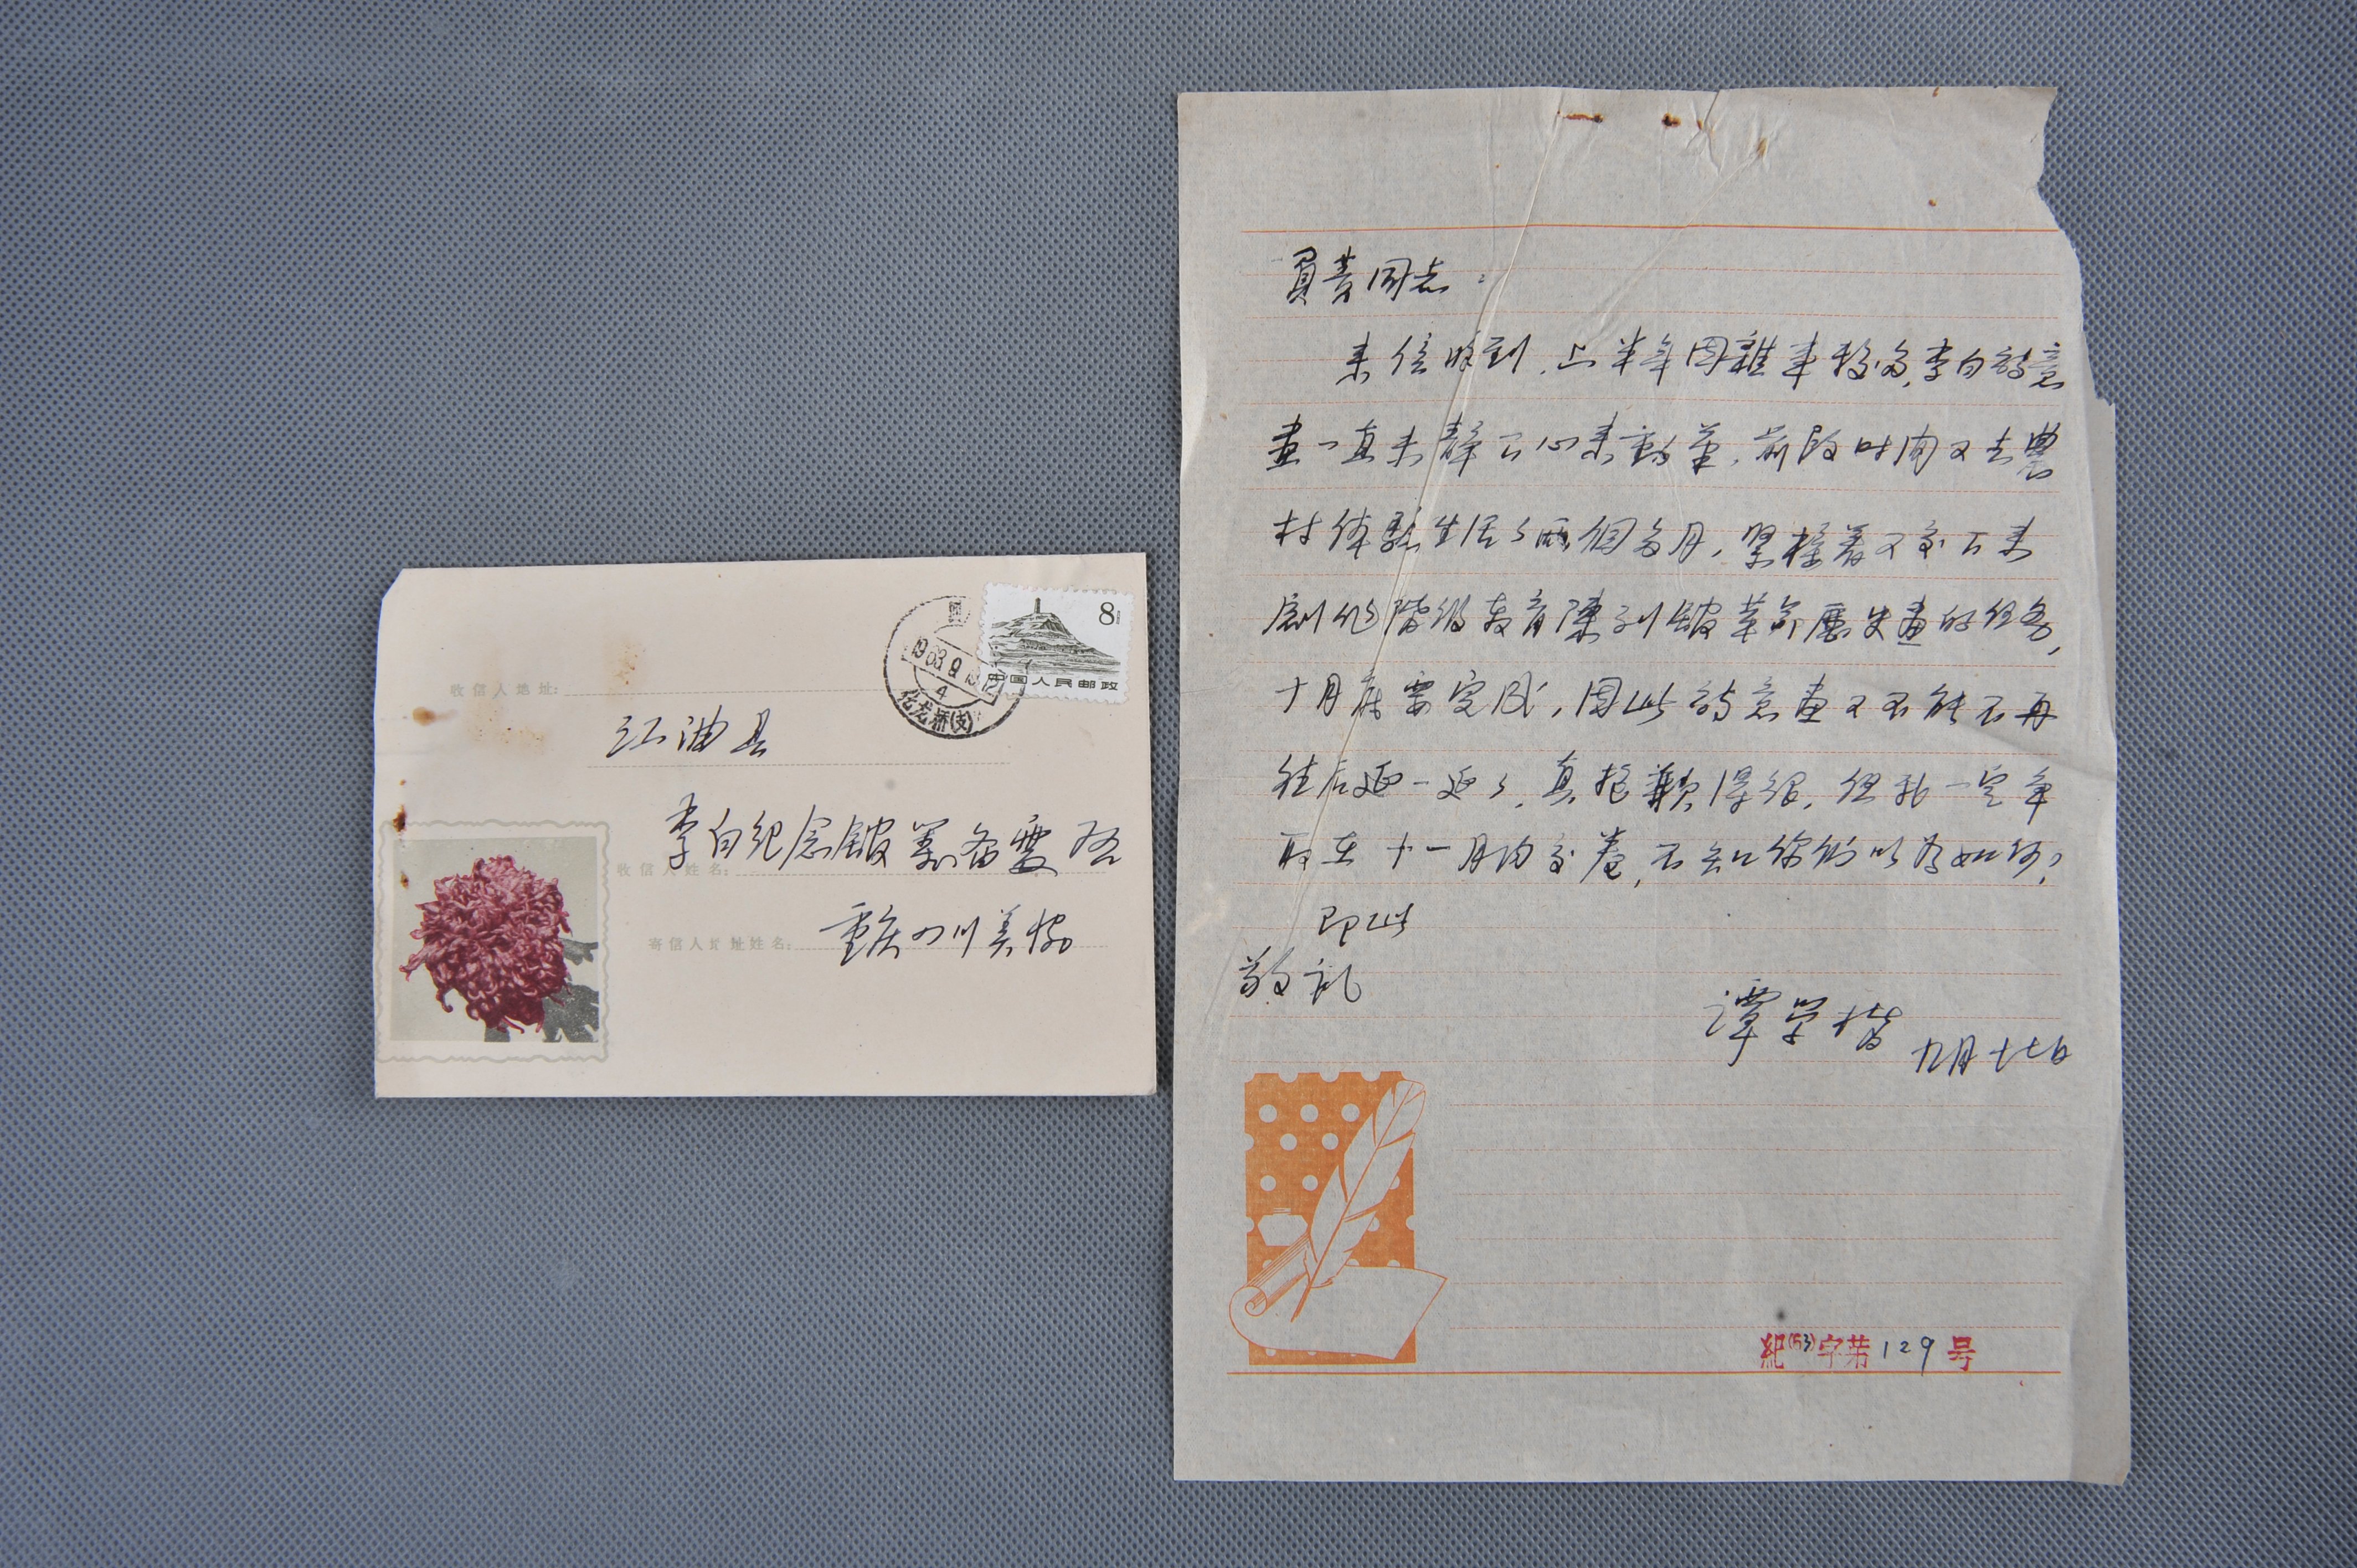 8
中国人民邮政
1963.9.18
4
化龙桥(支)
收信人地址:
江油县
李白纪念館筹备委
收信人姓名:
寄信人 址姓名:
重庆四川美协
同志:
来信收到，上半年因雜事較多，李白詩意
畫一直未靜下心来動筆，前段时间又去農
村体驗生活了両個多月，紧接着又交下来
創作階级教育陳列館革命歷史畫的任务，
十月底要完成，因此詩意畫又不能不再
往后延一延了，真抱歉得很，但我一定争
取在十一月内交卷，不知你們以为如何？
即此
敬礼
譚学楷
九月十七日
紀(63)字第129号